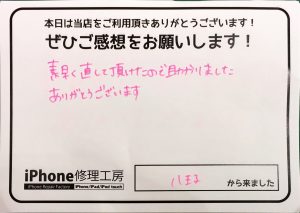 本日は当店をご利用頂きありがとうございます!
ぜひご感想をお願いします!
素早く直して頂けたので助かりました
ありがとうございます
iPhone修理工房
iPhone Repair Factory
iPhone/iPad/iPod touch
八王子
から来ました